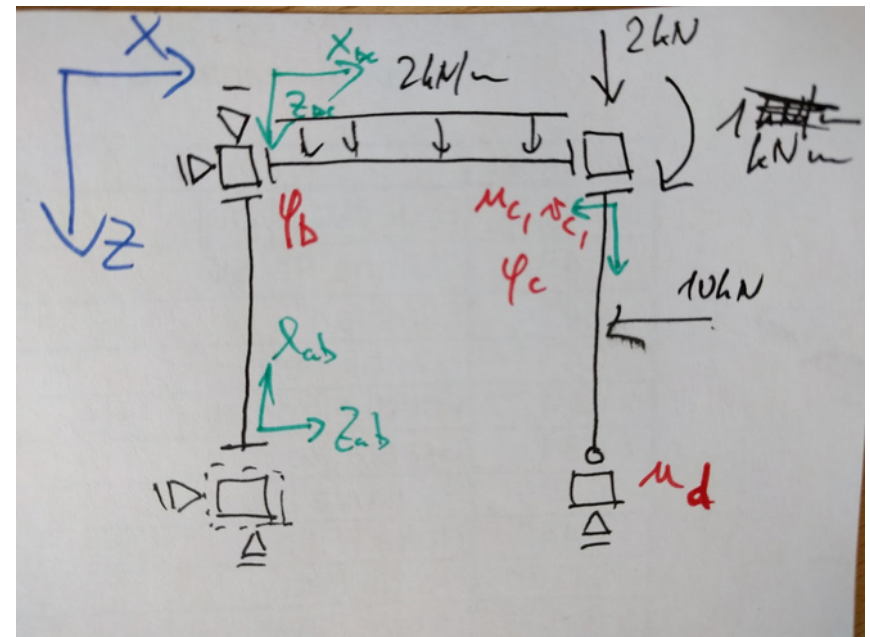 X
Z
X_bc
Z_bc
2kN/m
2kN
1
kNm
φ_b
u_c, v_c,
φ_c
10kN
X_ab
Z_ab
u_d